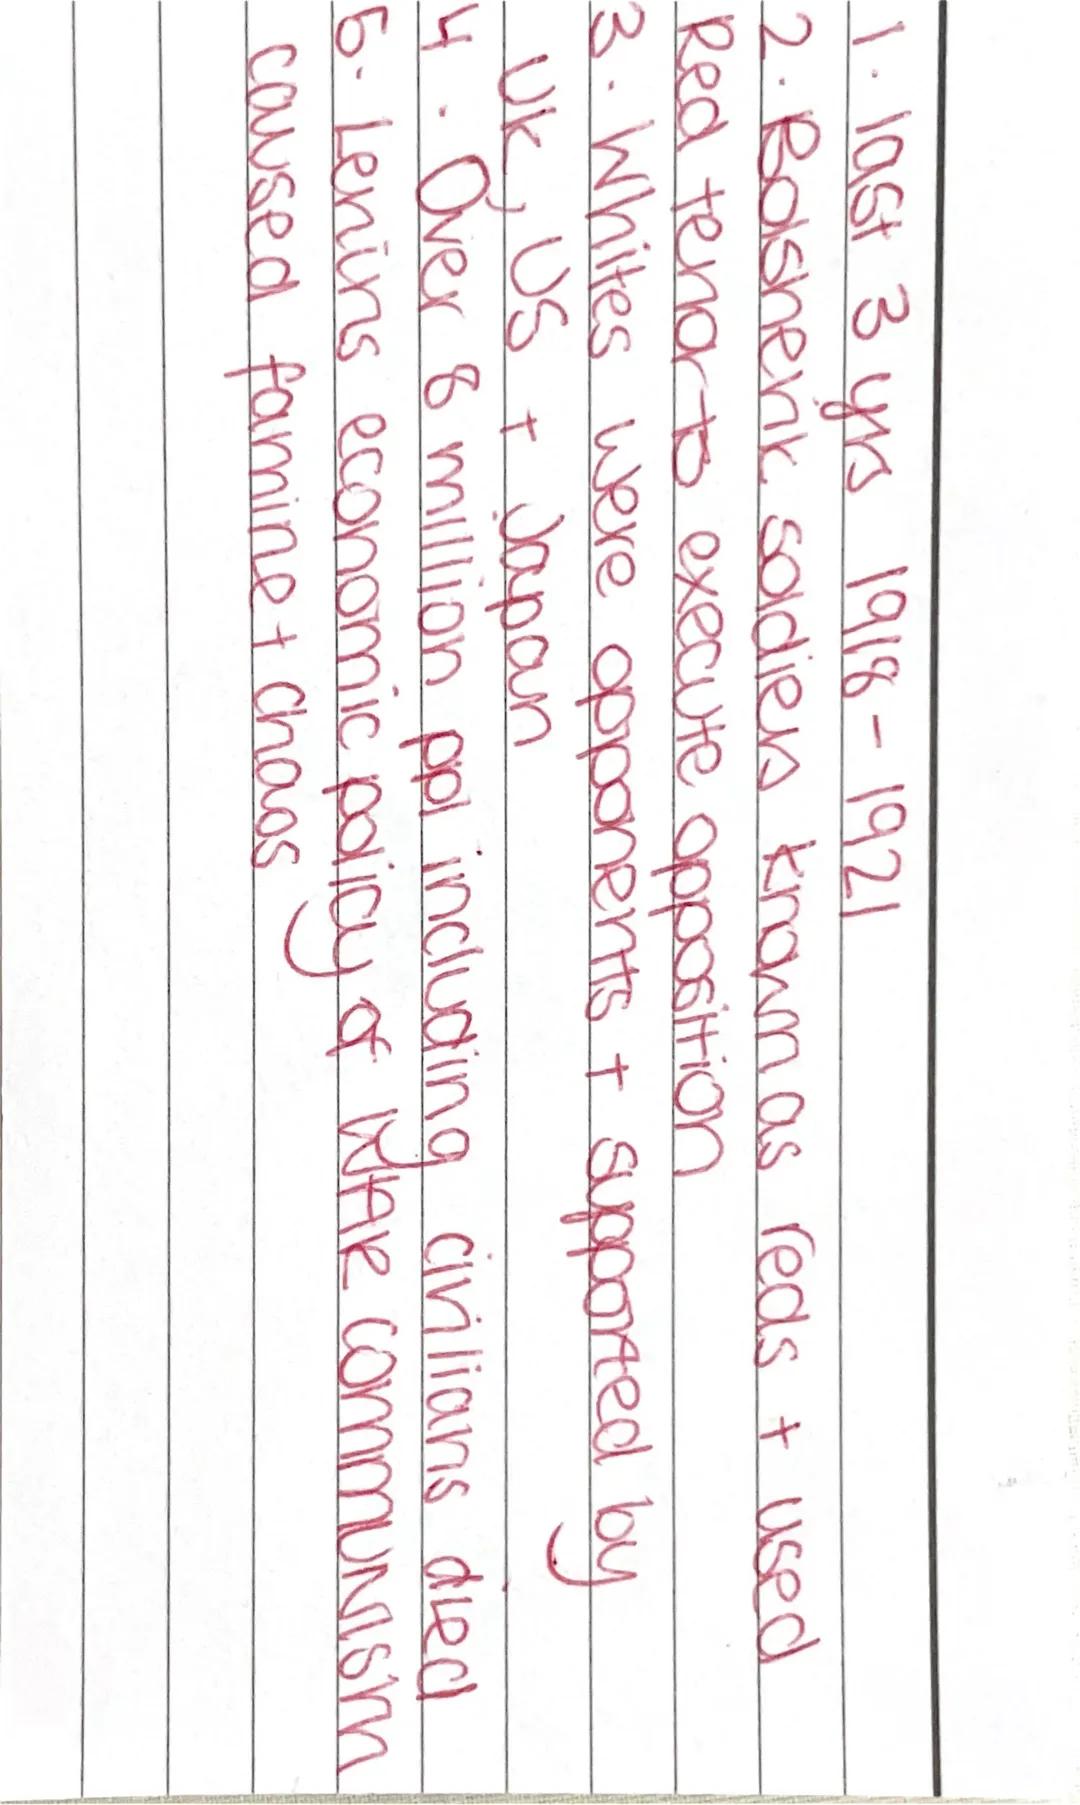 1. last 3 yrs 1918-1921
2. Bolshevik soldiers known as reds + used
Red terror to execute opposition
3. Whites were opponents + supported by
UK, US + Japan
4. Over 8 million ppl including civilians died
5. Lenins economic policy of WAR COMMUNISM
caused famine + chaos